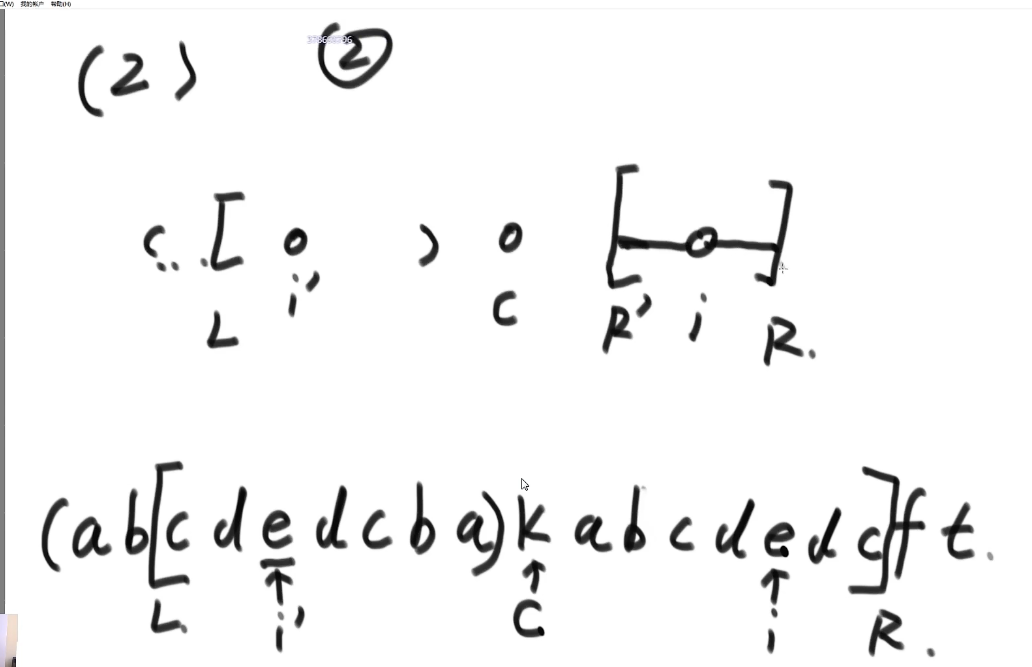 (W) 我的帐户 帮助(H)
(2) ②
( . . . [ o ) o [ o ]
L i' C R' i R.
(ab[cdedcba)kabcdedc]ft.
↑ ↑ ↑
L. i' C. i R.